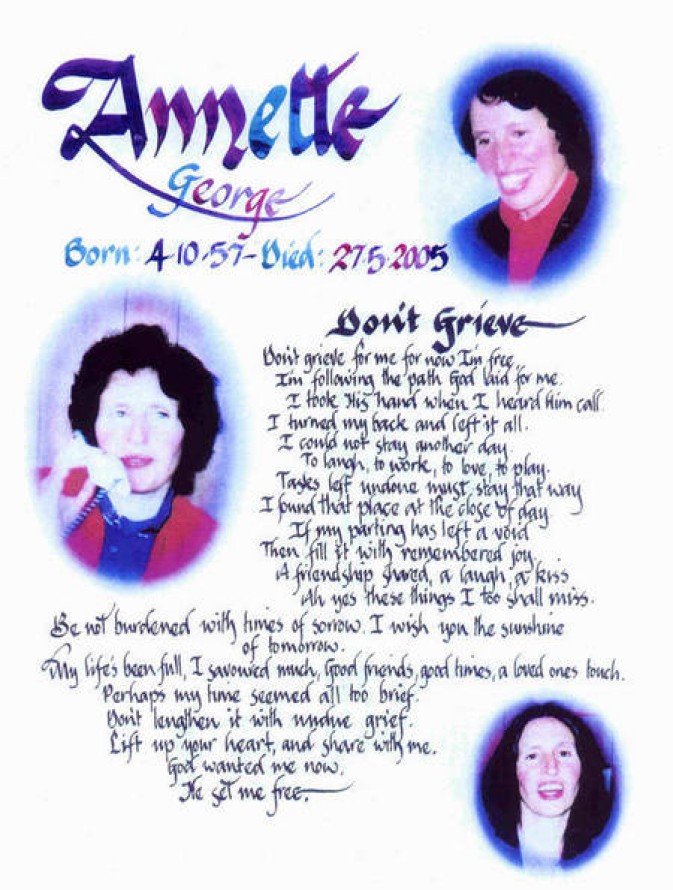 Annette
George
Born: 4·10·57- Died: 27.5.2005
Don't Grieve
Don't grieve for me for now I'm free,
I'm following the path God laid for me.
I took His hand when I heard Him call.
I turned my back and left it all.
I could not stay another day
To laugh, to work, to love, to play.
Tasks left undone must stay that way
I found that place at the close of day
If my parting has left a void
Then fill it with remembered joy.
A friendship shared, a laugh, a kiss
Ah yes these things I too shall miss.
Be not burdened with times of sorrow. I wish you the sunshine
of tomorrow.
My life's been full, I savoured much, Good friends, good times, a loved ones touch.
Perhaps my time seemed all too brief.
Don't lengthen it with undue grief.
Lift up your heart, and share with me.
God wanted me now.
He set me free.